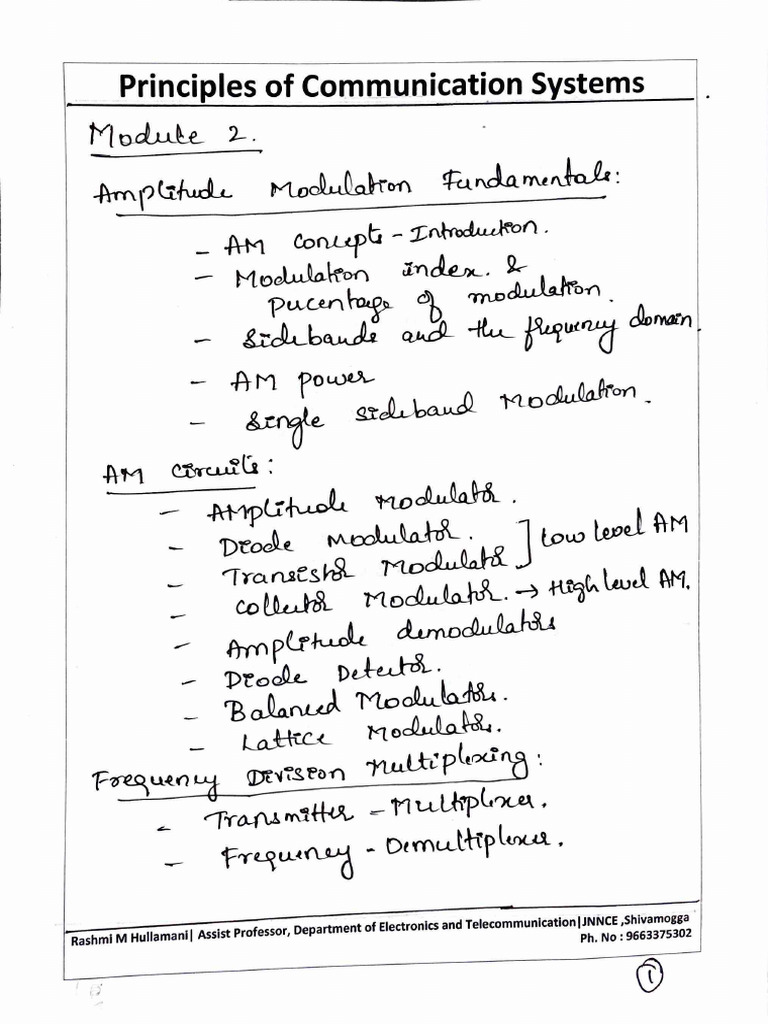 Principles of Communication Systems
Module 2.
Amplitude Modulation Fundamentals:
- AM concepts - Introduction.
- Modulation index. &
Percentage of modulation.
- Sidebands and the frequency domain.
- AM power
- Single Sideband Modulation.
AM Circuits:
- Amplitude Modulator.
- Diode Modulator.
- Transistor Modulator ] Low level AM
- Collector Modulator. → High level AM.
- Amplitude demodulators
- Diode Detector.
- Balanced Modulators.
- Lattice Modulators.
Frequency Division Multiplexing:
- Transmitter - Multiplexer.
- Frequency - Demultiplexer.
Rashmi M Hullamani| Assist Professor, Department of Electronics and Telecommunication|JNNCE ,Shivamogga
Ph. No : 9663375302
1